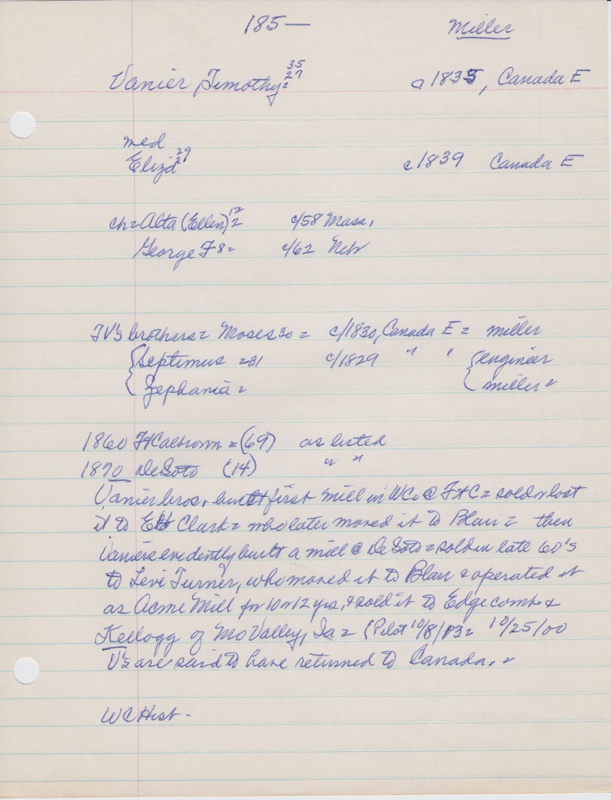 185—
Miller
Vanier, Timothy = 35 27
c 1835, Canada E
med
Eliz'd 29
c 1839 Canada E
ch = Alta (Ellen) 12 = c/58 Mass,
George F 8 = c/62 Neb
TV's brothers = Moses 30 = c/1830, Canada E = miller
{ Septimus = 31 c/1829 " " { engineer
{ Zephania = { miller =
1860 Ft Calhoun = (69) as listed
1870 DeSoto (14) " "
Vanier bros, built first mill in WC = @ Ft C = sold or lost
it to Clark = who later moved it to Blair = then
Vaniers evidently built a mill @ DeSoto = sold in late 60's
to Levi Turner, who moved it to Blair & operated it
as Acme Mill for 10 or 12 yrs, & sold it to Edgecomb &
Kellogg of Mo Valley, Ia = (Pilot 10/8/03 = 10/25/00
V's are said to have returned to Canada. =
WC Hist -